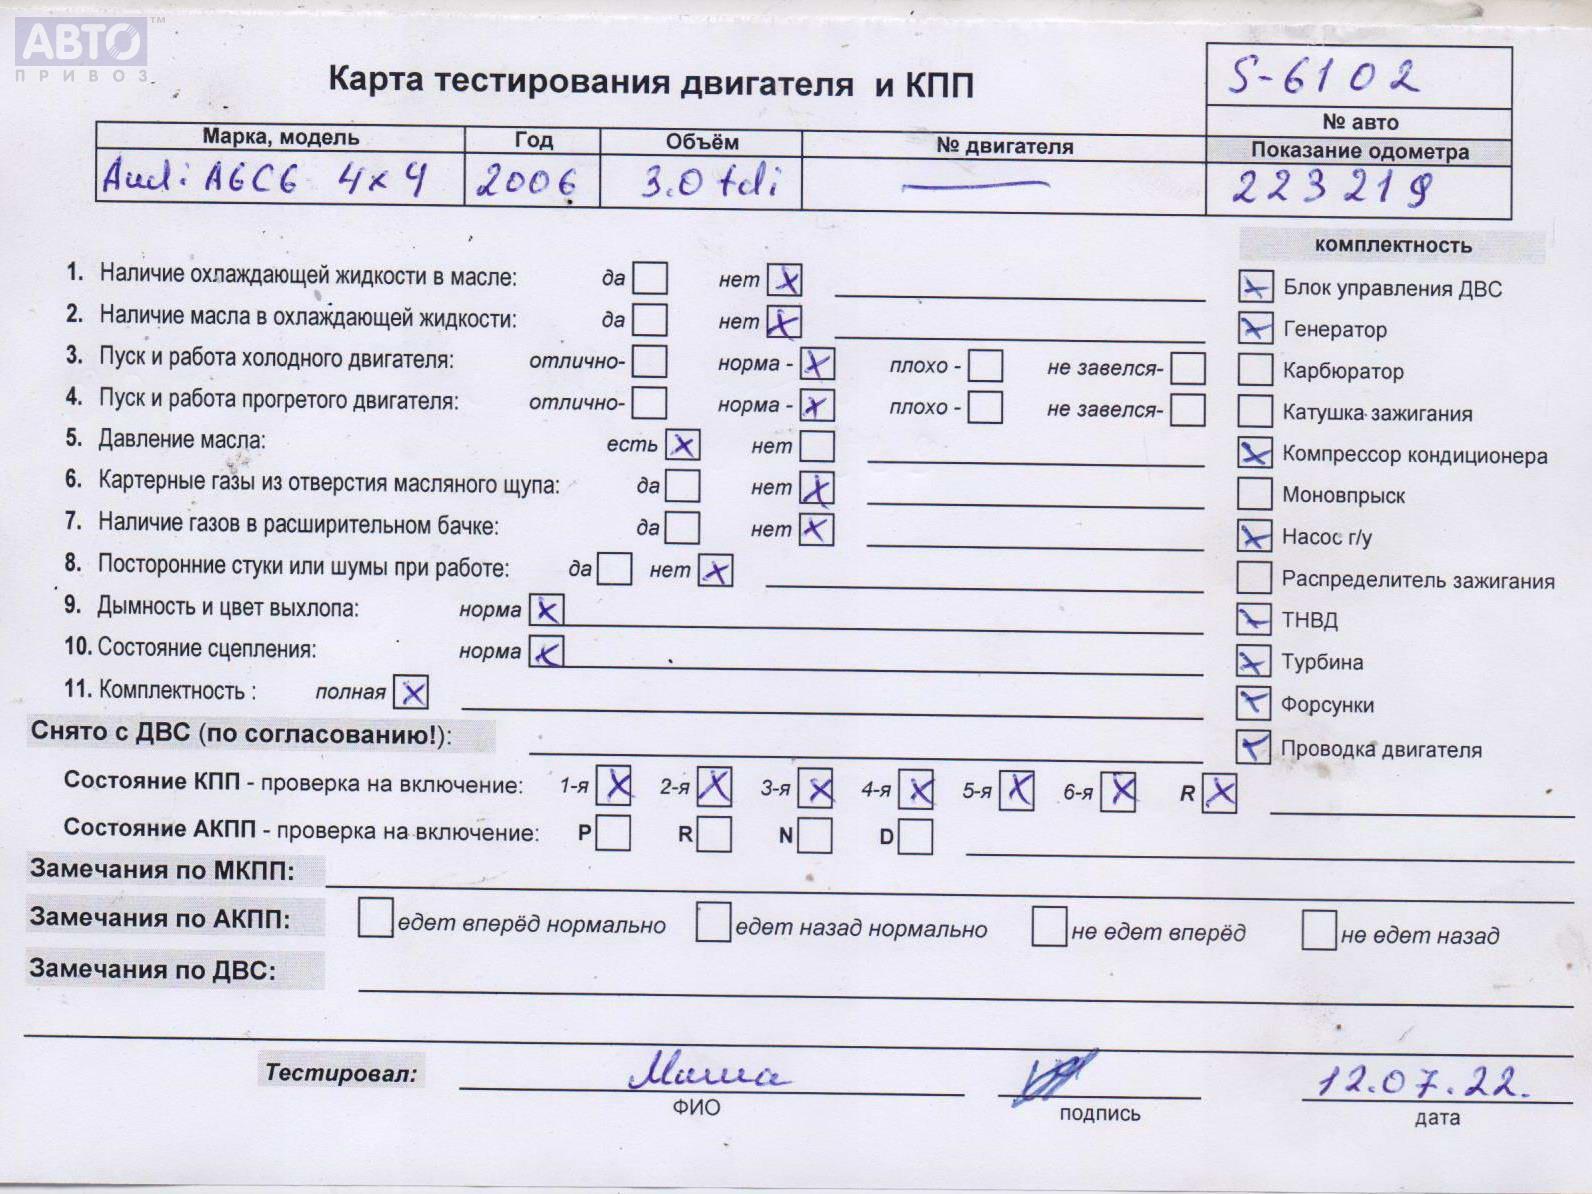 АВТО™
ПРИВОЗ
Карта тестирования двигателя и КПП
S-6102
№ авто
Марка, модель Год Объём № двигателя Показание одометра
Audi A6C6 4x4 2006 3.0 tdi — 223219
комплектность
1. Наличие охлаждающей жидкости в масле: да нет x
2. Наличие масла в охлаждающей жидкости: да нет x
3. Пуск и работа холодного двигателя: отлично- норма - x плохо - не завелся-
4. Пуск и работа прогретого двигателя: отлично- норма - x плохо - не завелся-
5. Давление масла: есть x нет
6. Картерные газы из отверстия масляного щупа: да нет x
7. Наличие газов в расширительном бачке: да нет x
8. Посторонние стуки или шумы при работе: да нет x
9. Дымность и цвет выхлопа: норма x
10. Состояние сцепления: норма x
11. Комплектность : полная x
x Блок управления ДВС
x Генератор
Карбюратор
Катушка зажигания
x Компрессор кондиционера
Моновпрыск
x Насос г/у
Распределитель зажигания
x ТНВД
x Турбина
x Форсунки
x Проводка двигателя
Снято с ДВС (по согласованию!):
Состояние КПП - проверка на включение: 1-я x 2-я x 3-я x 4-я x 5-я x 6-я x R x
Состояние АКПП - проверка на включение: P R N D
Замечания по МКПП:
Замечания по АКПП: едет вперёд нормально едет назад нормально не едет вперёд не едет назад
Замечания по ДВС:
Тестировал: 12.07.22.
ФИО подпись дата